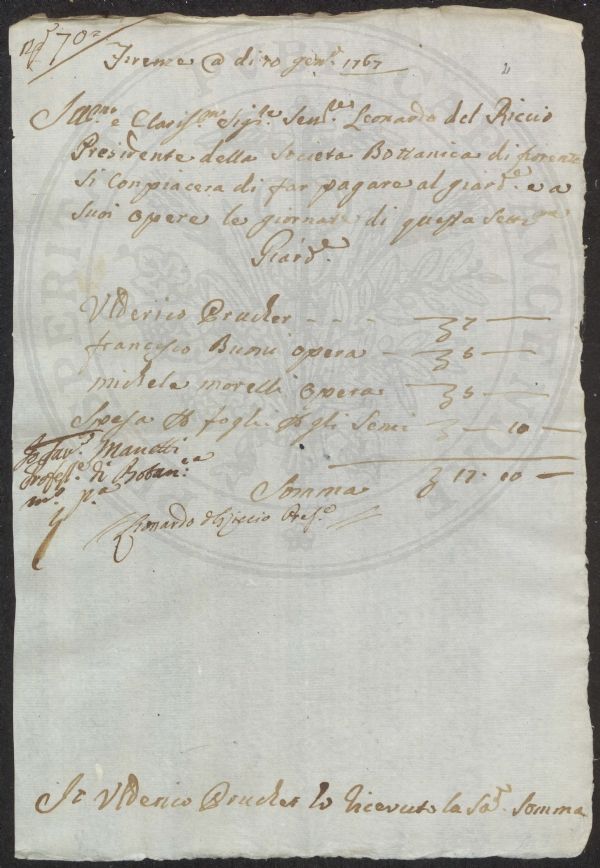 N.° 70
Firenze @ di 10 Gen.° 1767
Ill.mo e Claris.mo Sig.re Sen.re Leonardo del Riccio
Presidente della Societa Bottanica di fiorenze
si Conpiacera di far pagare al giard.e e a
suoi opere le giornate di questa Setti.na
Giard.e
Vlderico Prucher - - - 7 —
francesco Bumi opera — 5 —
michele morelli opera 5 —
Spesa di fogli p gli Semi — 10 —
Manetti
Profess.e di Botan.ca
m.° p.a
Somma 17 · 10 —
Leonardo del Riccio Pres.e
Io Vlderico Prucher ho Ricevuto la Sd.a Somma